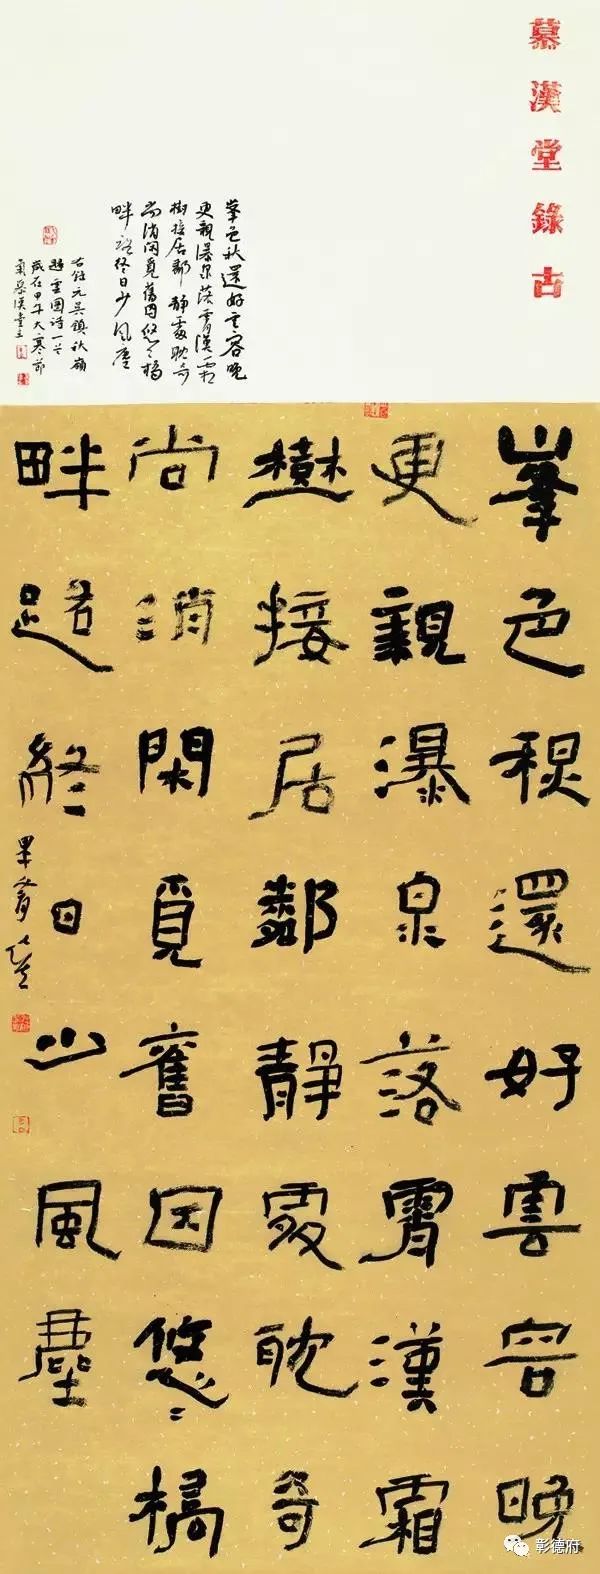 慕漢堂錄古
峯色秋還好雲容晚
更親瀑泉落霄漢霜
樹接居鄰靜處耽奇
尚消閑覓舊因悠々橘
畔路終日少風塵
元吳鎮秋嶺
歸雲圖詩一首
歲在甲午大寒節
慕漢堂主
峯色秋還好雲容晚
更親瀑泉落霄漢霜
樹接居鄰靜處耽奇
尚消閑覓舊因悠々橘
畔路終日少風塵
彰德府